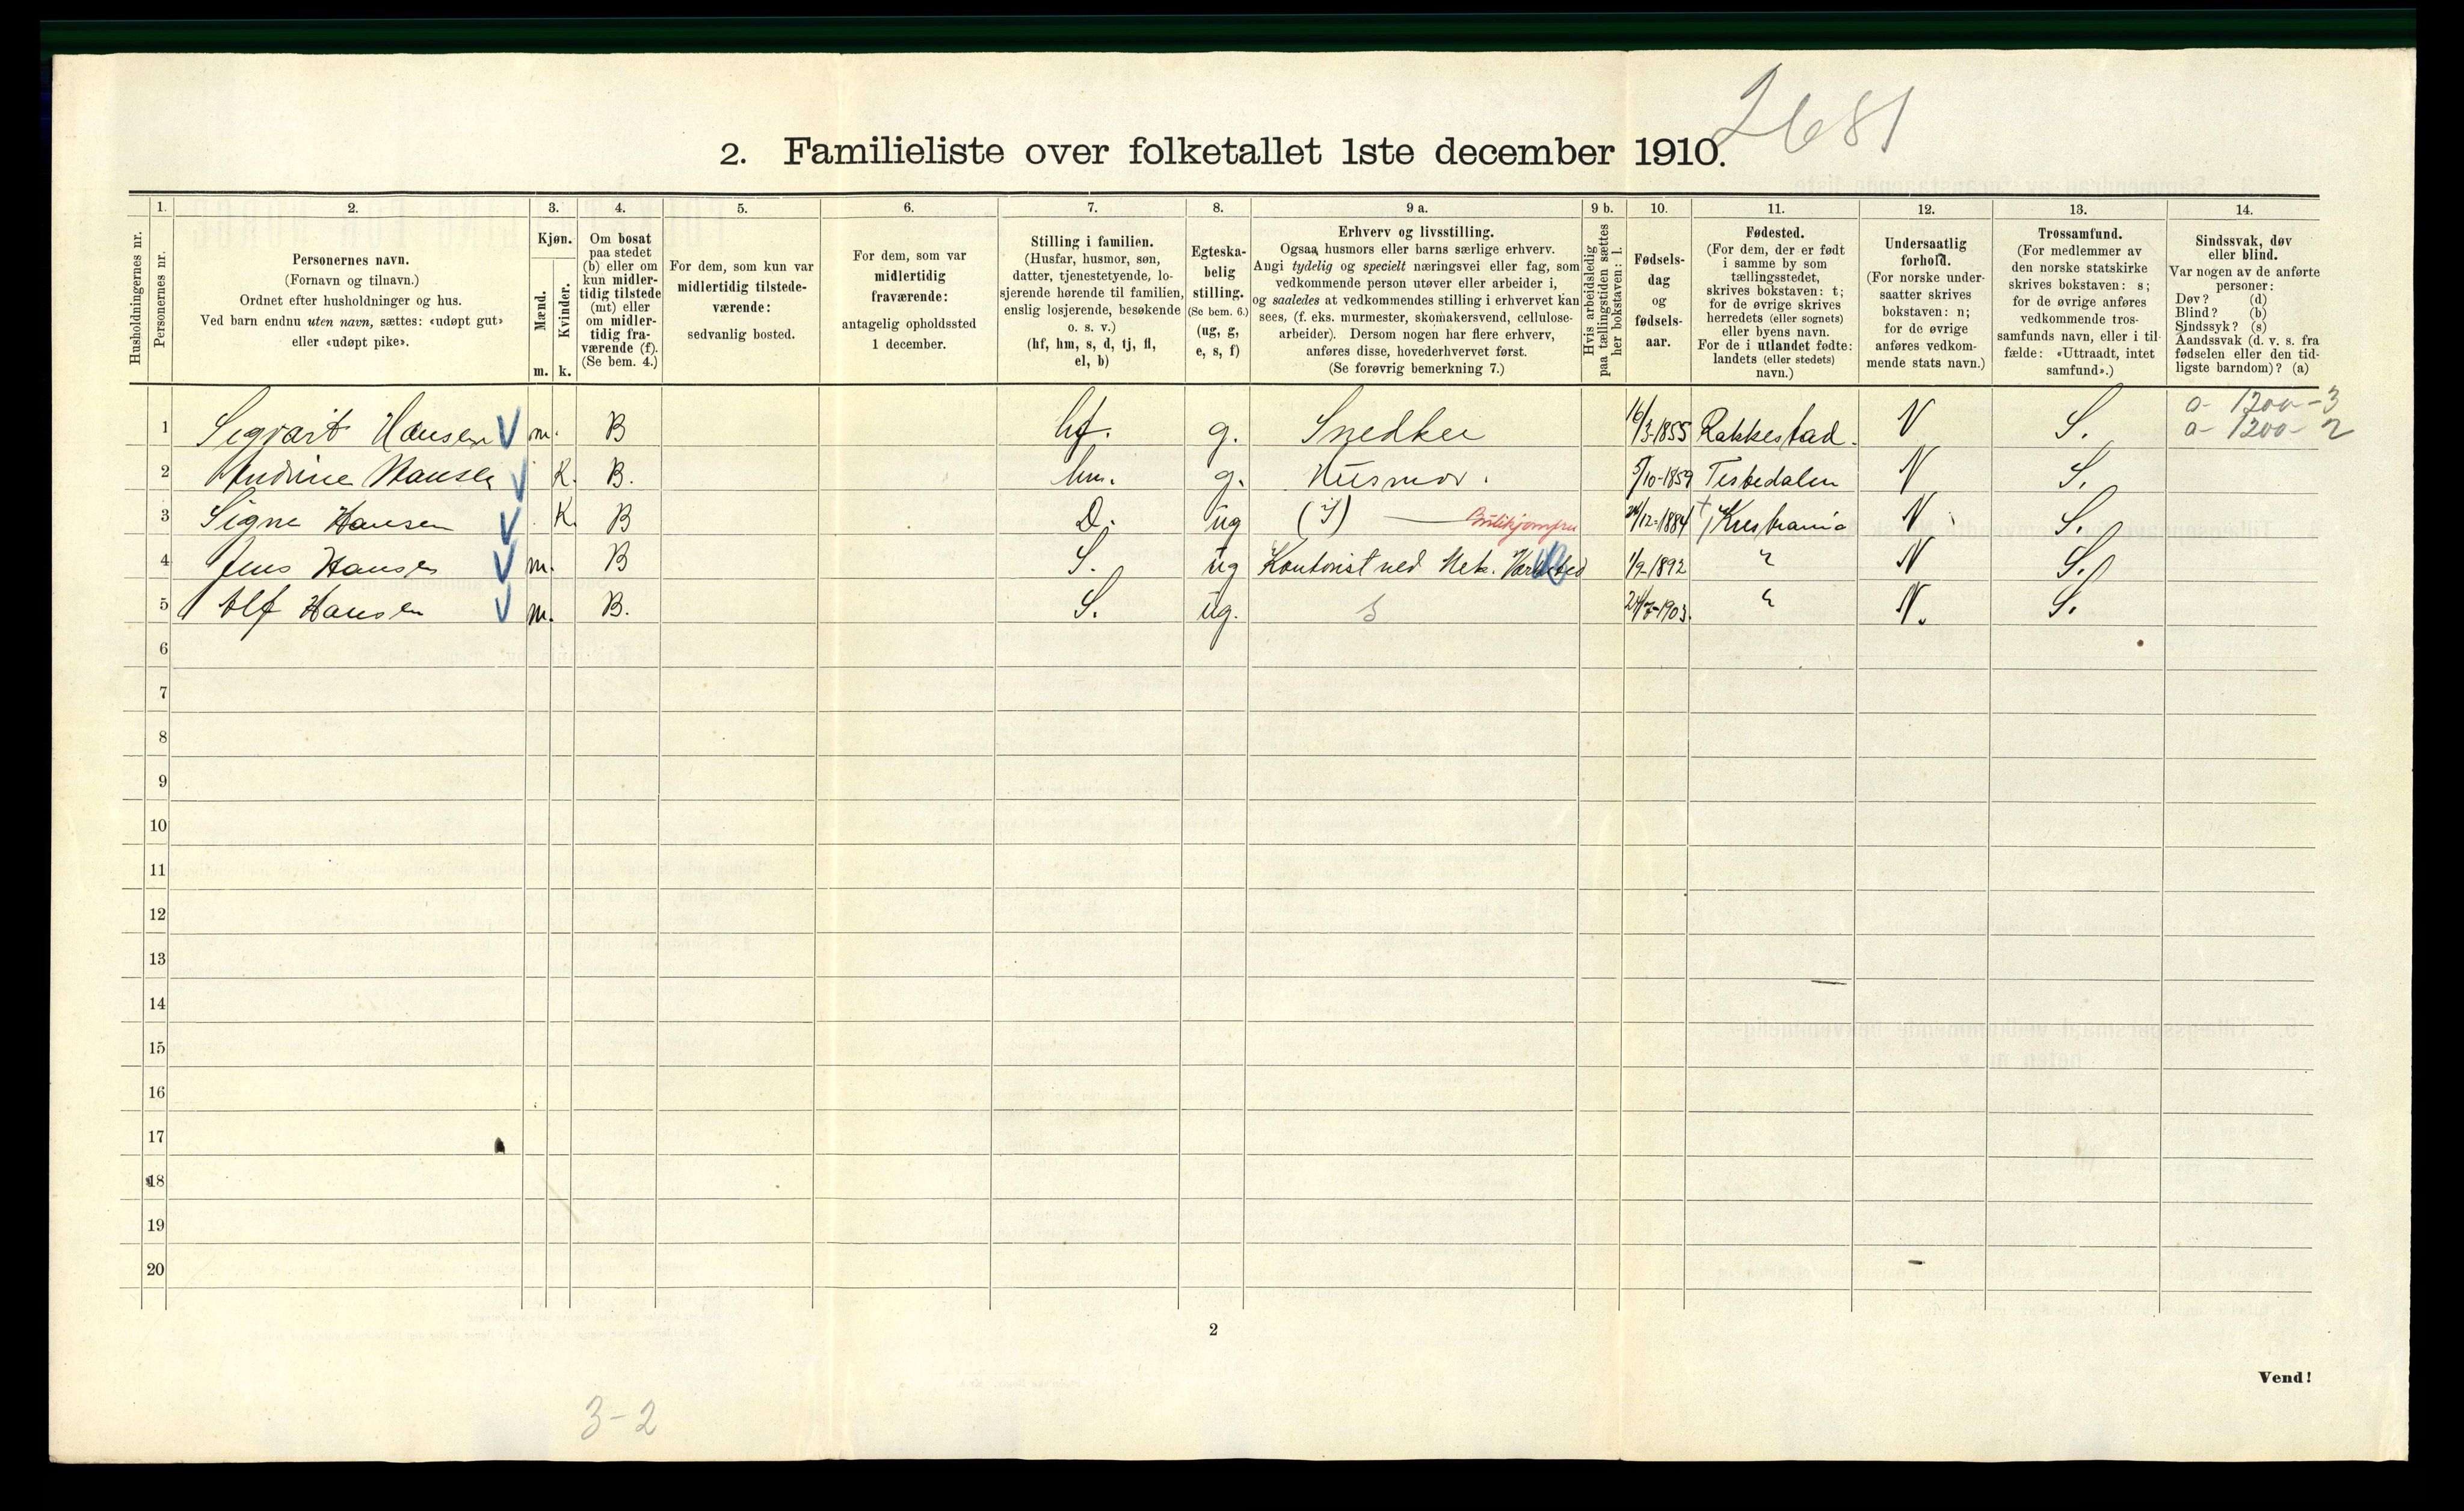 2681
2. Familieliste over folketallet 1ste december 1910.
Husholdningernes nr.
1. Personernes nr.
2.
Personernes navn.
(Fornavn og tilnavn.)
Ordnet efter husholdninger og hus.
Ved barn endnu uten navn, sættes: «udøpt gut»
eller «udøpt pike».
3.
Kjøn.
Mænd. Kvinder.
m. k.
4.
Om bosat
paa stedet
(b) eller om
kun midler-
tidig tilstede
(mt) eller
om midler-
tidig fra-
værende (f).
(Se bem. 4.)
5.
For dem, som kun var
midlertidig tilstede-
værende:
sedvanlig bosted.
6.
For dem, som var
midlertidig
fraværende:
antagelig opholdssted
1 december.
7.
Stilling i familien.
(Husfar, husmor, søn,
datter, tjenestetyende, lo-
sjerende hørende til familien,
enslig losjerende, besøkende
o. s. v.)
(hf, hm, s, d, tj, fl,
el, b)
8.
Egteska-
belig
stilling.
(Se bem. 6.)
(ug, g,
e, s, f)
9 a.
Erhverv og livsstilling.
Ogsaa husmors eller barns særlige erhverv.
Angi tydelig og specielt næringsvei eller fag, som
vedkommende person utøver eller arbeider i,
og saaledes at vedkommendes stilling i erhvervet kan
sees, (f. eks. murmester, skomakersvend, cellulose-
arbeider). Dersom nogen har flere erhverv,
anføres disse, hovederhvervet først.
(Se forøvrig bemerkning 7.)
9 b.
Hvis arbeidsledig
paa tællingstiden sættes
her bokstaven: l.
10.
Fødsels-
dag
og
fødsels-
aar.
11.
Fødested.
(For dem, der er født
i samme by som
tællingsstedet,
skrives bokstaven: t;
for de øvrige skrives
herredets (eller sognets)
eller byens navn.
For de i utlandet fødte:
landets (eller stedets)
navn.)
12.
Undersaatlig
forhold.
(For norske under-
saatter skrives
bokstaven: n;
for de øvrige
anføres vedkom-
mende stats navn.)
13.
Trossamfund.
(For medlemmer av
den norske statskirke
skrives bokstaven: s;
for de øvrige anføres
vedkommende tros-
samfunds navn, eller i til-
fælde: «Uttraadt, intet
samfund».)
14.
Sindssvak, døv
eller blind.
Var nogen av de anførte
personer:
Døv? (d)
Blind? (b)
Sindssyk? (s)
Aandssvak (d. v. s. fra
fødselen eller den tid-
ligste barndom)? (a)
a- 1200-3
a- 1200-2
1 Sigvart Hansen V m. B hf. g. Snedker 16/3-1855 Rakkestad. N S.
2 Andrine Hansen V K. B. hm. g. Husmor. 5/10-1859 N S.
3 Signe Hansen V K. B D. ug Butikjomfru 24/12-1884 t Kristiania N S.
4 Jens Hansen V m. B S. ug Kontorist ved Mek. Værksted 1/9-1892 " N S.
5 Alf Hansen V m. B. S. ug. 24/7-1903. " N. S.
6
7
8
9
10
11
12
13
14
15
16
17
18
19
20
2
Vend!
3-2